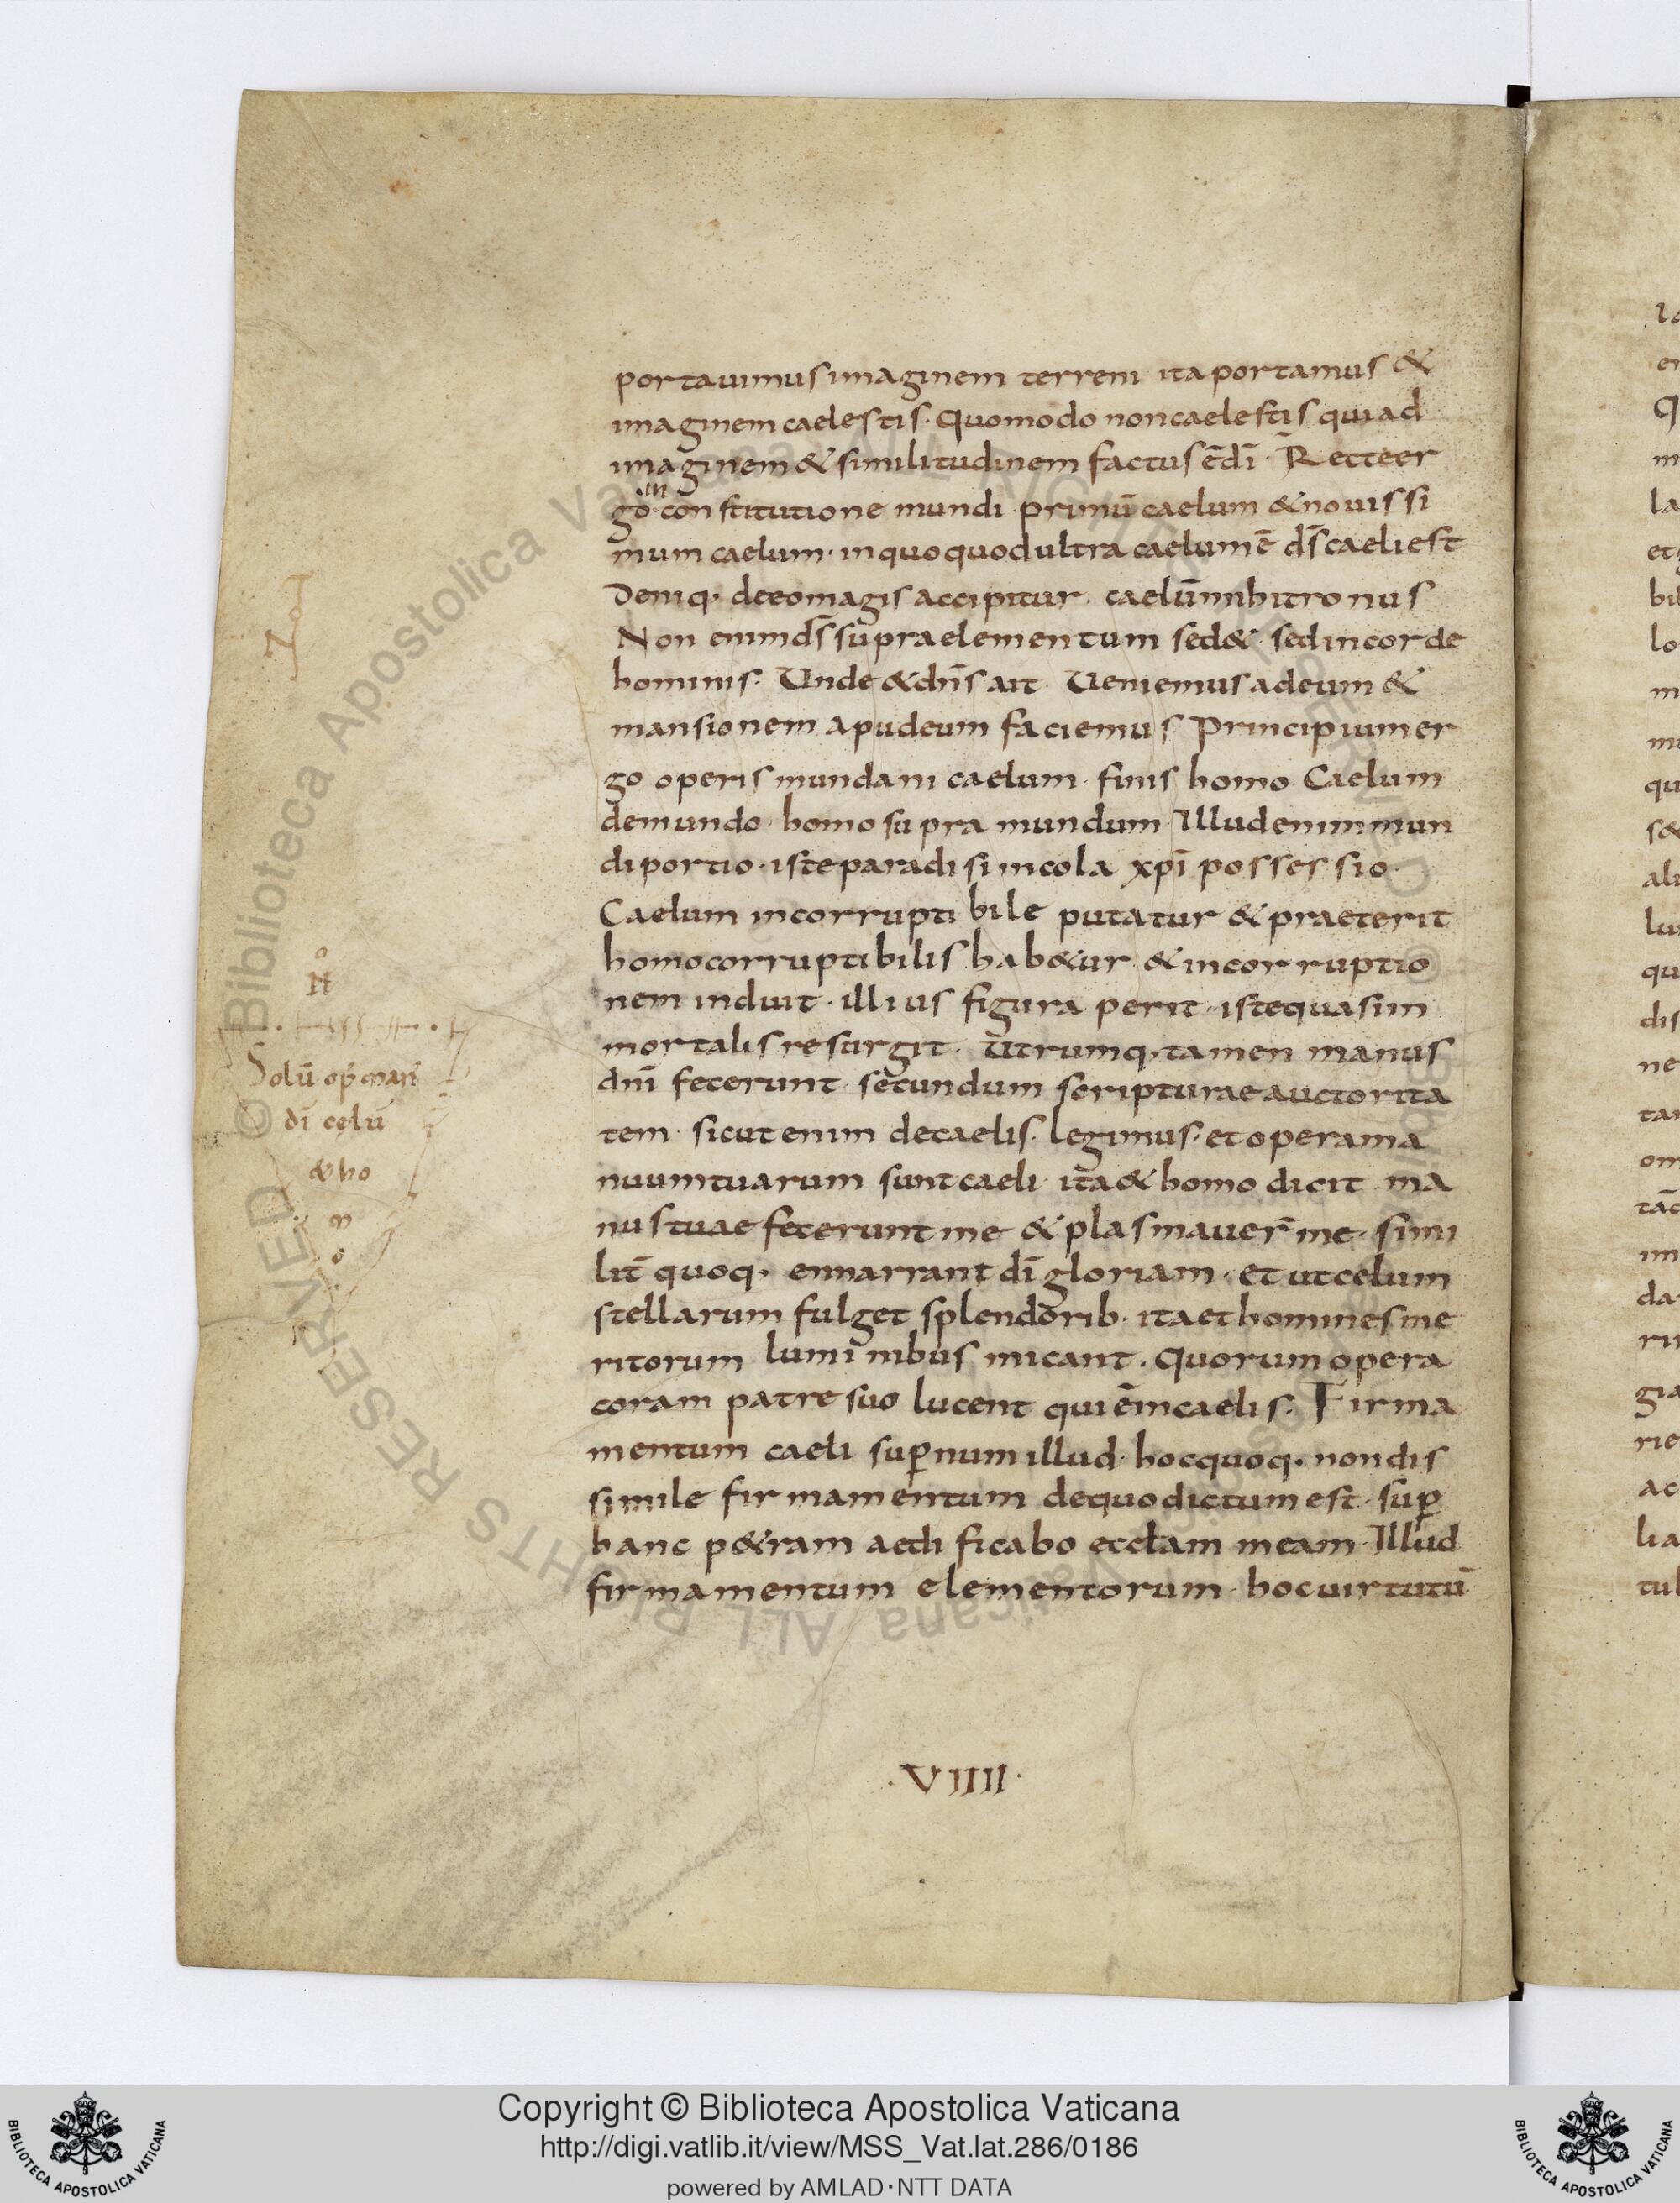 portauimus imaginem terreni ita portamus &
imaginem caelestis. Quomodo non caelestis qui ad
imaginem & similitudinem factus ē dī. Recte er
go in constitutione mundi primū caelum & nouissi
mum caelum. in quo quod ultra caelum ē ds̄ caeli est
Deniq. de eo magis accipitur. caelū mihi tronus
Non enim ds̄ supra elementum sed &. sed in corde
hominis. Unde & dn̄s ait. Ueniemus ad eum &
mansionem apud eum faciemus Principium er
go operis mundani caelum. finis homo. Caelum
de mundo. homo supra mundum. Illud enim mun
di portio. iste paradisi incola xp̄i possessio.
Caelum incorruptibile putatur & praeterit
homo corruptibilis hab&ur. & incorruptio
nem induit. illius figura perit. iste quasi in
mortalis resurgit. Utrumq. tamen manus
dnī fecerunt. secundum scripturae auctorita
tem. sicut enim de caelis. legimus. et opera ma
nuum tuarum sunt caeli. ita & homo dicit ma
nus tuae fecerunt me & plasmauer̄ me. simi
lit̄ quoq. ennarrant dī gloriam. et ut celum
stellarum fulget splendorib. ita et homines me
ritorum luminibus micant. quorum opera
coram patre suo lucent qui ē in caelis. Firma
mentum caeli sup̄num illud. hoc quoq. non dis
simile firmamentum de quo dictum est. sup̄
hanc p&ram aedificabo eccłam meam. Illud
firmamentum elementorum. hoc uirtutū
Solū op̄ man̄
dī celū
& ho
m
o
.VIIII.
© Biblioteca Apostolica Vaticana ALL RIGHTS RESERVED
Copyright © Biblioteca Apostolica Vaticana
http://digi.vatlib.it/view/MSS_Vat.lat.286/0186
powered by AMLAD·NTT DATA
BIBLIOTECA APOSTOLICA VATICANA
BIBLIOTECA APOSTOLICA VATICANA